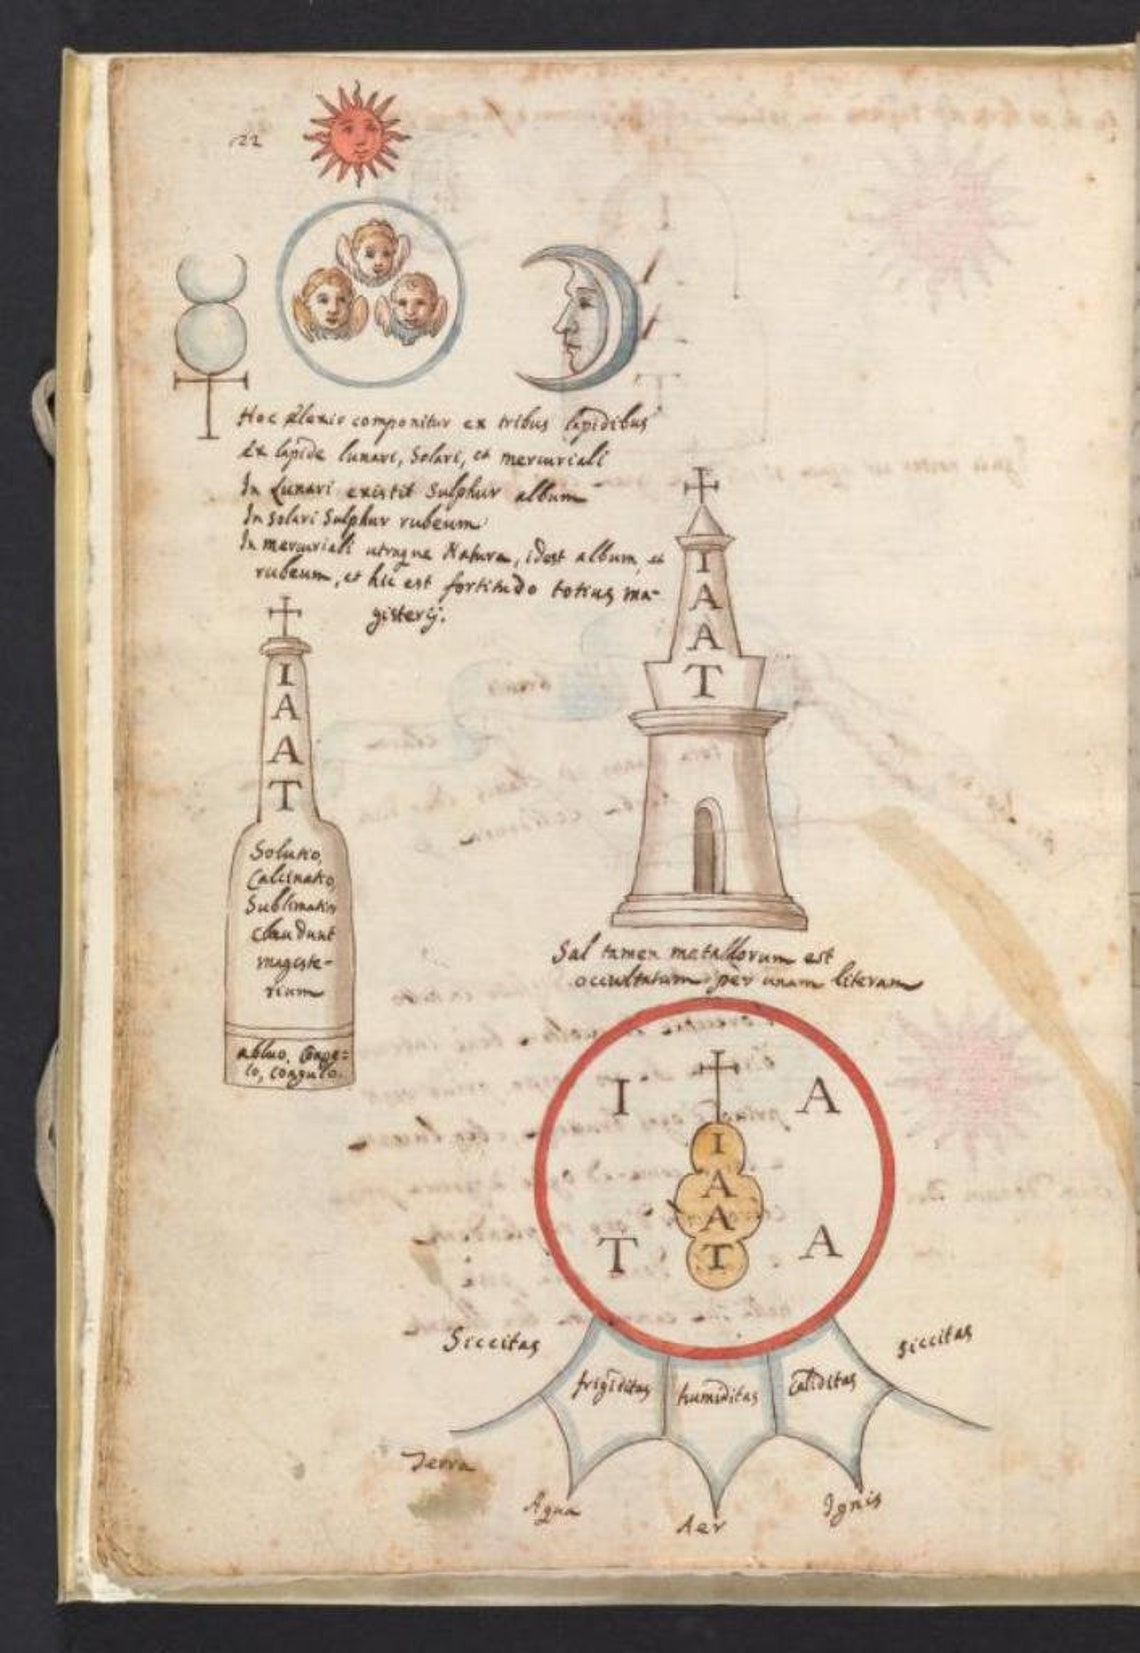 22
Hoc Elexir componitur ex tribus lapidibus
Ex lapide lunari, Solari, et mercuriali
In Lunari existit Sulphur album
In solari Sulphur rubeum
In mercuriali utraque Natura, idest album, et
rubeum, et hic est fortitudo totius ma-
gisterij.
I
A
A
T
Solutio,
Calcinatio,
Sublimatio
claudunt
magiste-
rium
abluo, Conge-
lo, coagulo.
I
A
A
T
Sal tamen metallorum est
occultatum per unam literam
I A
I
A
A
T
T A
Siccitas siccitas
frigiditas humiditas caliditas
Terra
Aqua Aer Ignis